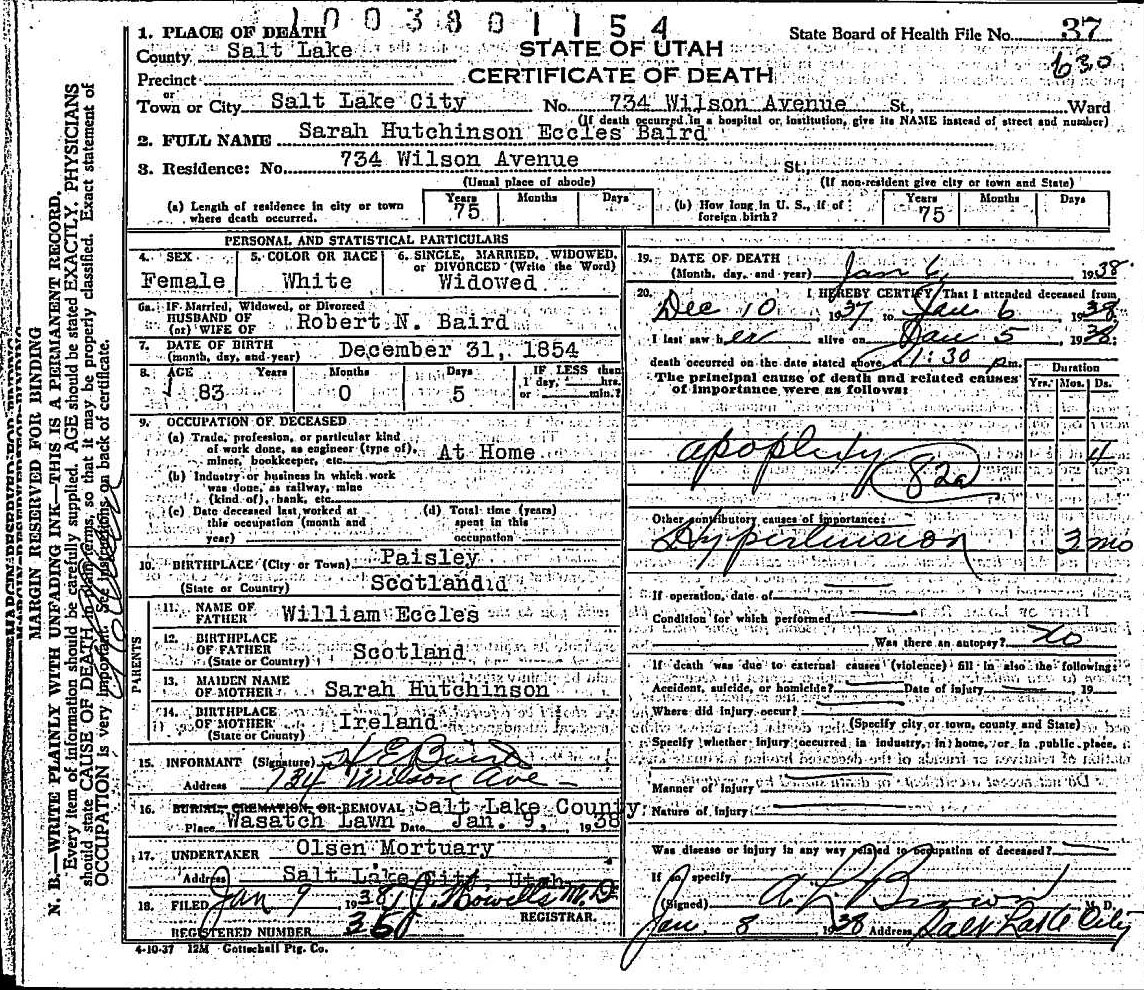 1003801154
1. PLACE OF DEATH
State Board of Health File No. 37
County Salt Lake
STATE OF UTAH
630
Precinct
CERTIFICATE OF DEATH
or
Town or City Salt Lake City No. 734 Wilson Avenue St., Ward
(If death occurred in a hospital or institution, give its NAME instead of street and number)
2. FULL NAME Sarah Hutchinson Eccles Baird
3. Residence: No. 734 Wilson Avenue St.,
(Usual place of abode) (If non-resident give city or town and State)
(a) Length of residence in city or town where death occurred. Years 75 Months Days
(b) How long in U. S., if of foreign birth? Years 75 Months Days
PERSONAL AND STATISTICAL PARTICULARS
4. SEX Female
5. COLOR OR RACE White
6. SINGLE, MARRIED, WIDOWED, or DIVORCED (Write the Word) Widowed
6a. IF Married, Widowed, or Divorced
HUSBAND OF
(or) WIFE OF Robert N. Baird
7. DATE OF BIRTH
(month, day, and year) December 31, 1854
8. AGE Years Months Days IF LESS than
1 day, hrs.
or min.?
83 0 5
9. OCCUPATION OF DECEASED
(a) Trade, profession, or particular kind
of work done, as engineer (type of),
miner, bookkeeper, etc. At Home
(b) Industry or business in which work
was done, as railway, mine
(kind of), bank, etc.
(c) Date deceased last worked at
this occupation (month and
year)
(d) Total time (years)
spent in this
occupation
10. BIRTHPLACE (City or Town) Paisley
(State or Country) Scotland
PARENTS
11. NAME OF
FATHER William Eccles
12. BIRTHPLACE
OF FATHER
(State or Country) Scotland
13. MAIDEN NAME
OF MOTHER Sarah Hutchinson
14. BIRTHPLACE
OF MOTHER
(State or County) Ireland
15. INFORMANT (Signature) H E Baird
Address 734 Wilson Ave
16. BURIAL, CREMATION, OR REMOVAL Salt Lake County,
Place Wasatch Lawn Date Jan. 9, 1938
17. UNDERTAKER Olsen Mortuary
Address Salt Lake City, Utah
18. FILED Jan 9 1938 T J Howells M.D.
REGISTRAR.
REGISTERED NUMBER 35
4-10-37 12M Gottschall Ptg. Co.
19. DATE OF DEATH
(Month, day, and year) Jan 6 1938
20. I HEREBY CERTIFY, That I attended deceased from
Dec 10 1937 to Jan 6 1938
I last saw her alive on Jan 5, 1938;
death occurred on the date stated above, at 1:30 pm.
The principal cause of death and related causes
of importance were as follows:
Duration
Yrs. Mos. Ds.
apoplexy 4
82a
Other contributory causes of importance:
Hypertension 3 mo
If operation, date of
Condition for which performed
Was there an autopsy? no
If death was due to external causes (violence) fill in also the following:
Accident, suicide, or homicide? Date of injury , 19
Where did injury occur?
(Specify city or town, county and State)
Specify whether injury occurred in industry, in home, or in public place.
Manner of injury
Nature of injury
Was disease or injury in any way related to occupation of deceased?
If so, specify
(Signed) A. L. Brown M. D.
Jan. 8 1938 Address Salt Lake City
MARGIN RESERVED FOR BINDING
N. B.—WRITE PLAINLY WITH UNFADING INK—THIS IS A PERMANENT RECORD.
Every item of information should be carefully supplied. AGE should be stated EXACTLY. PHYSICIANS
should state CAUSE OF DEATH in plain terms, so that it may be properly classified. Exact statement of
OCCUPATION is very important. See instructions on back of certificate.